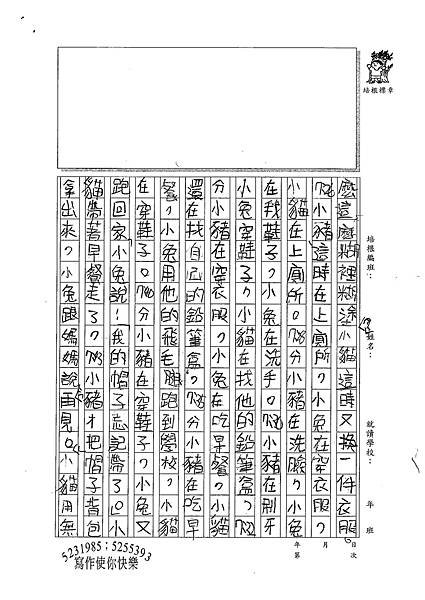 培根標章
培根編班：
姓名：
就讀學校：
年 班
年 月 日
第 次
麼這麼糊裡糊塗小貓這時又換一件衣服。
小豬這時在上廁所，小兔在穿衣服，
小貓在上廁所。分小豬在洗臉，小兔
在找鞋子，小兔在洗手。小豬在刷牙
小兔穿鞋子，小貓在找他的鉛筆盒，
分小豬在穿衣服，小兔在吃早餐，小貓
還在找自己的鉛筆盒，分小豬在吃早
餐，小兔用他的飛毛腿跑到學校，小貓
在穿鞋子。分小豬在穿鞋子，小兔又
跑回家小兔說！我的帽子忘記帶了。」小
貓帶著早餐走了。小豬才把帽子背包
拿出來，小兔跟媽媽說再見。小貓用無
5231985；5255393
寫作使你快樂